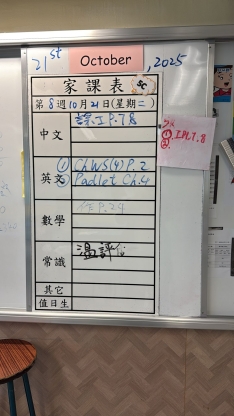 21st October, 2025
家課表
第8週10月21日(星期二)
中文
I P.7,8
英文
① Ch WS(4) P.2
② Padlet Ch.4
數學
作 P.24
常識
溫評估
其它
值日生
①
②